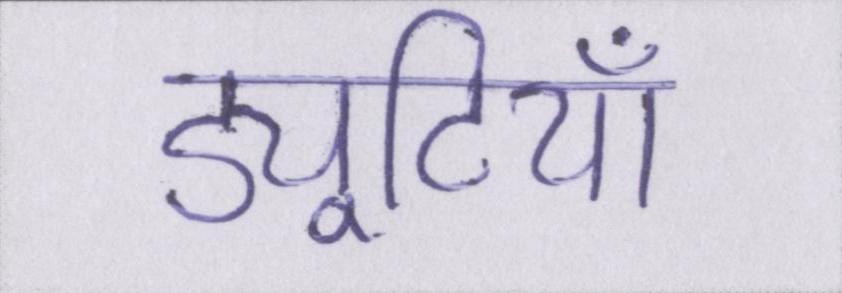 ड्यूटियाँ